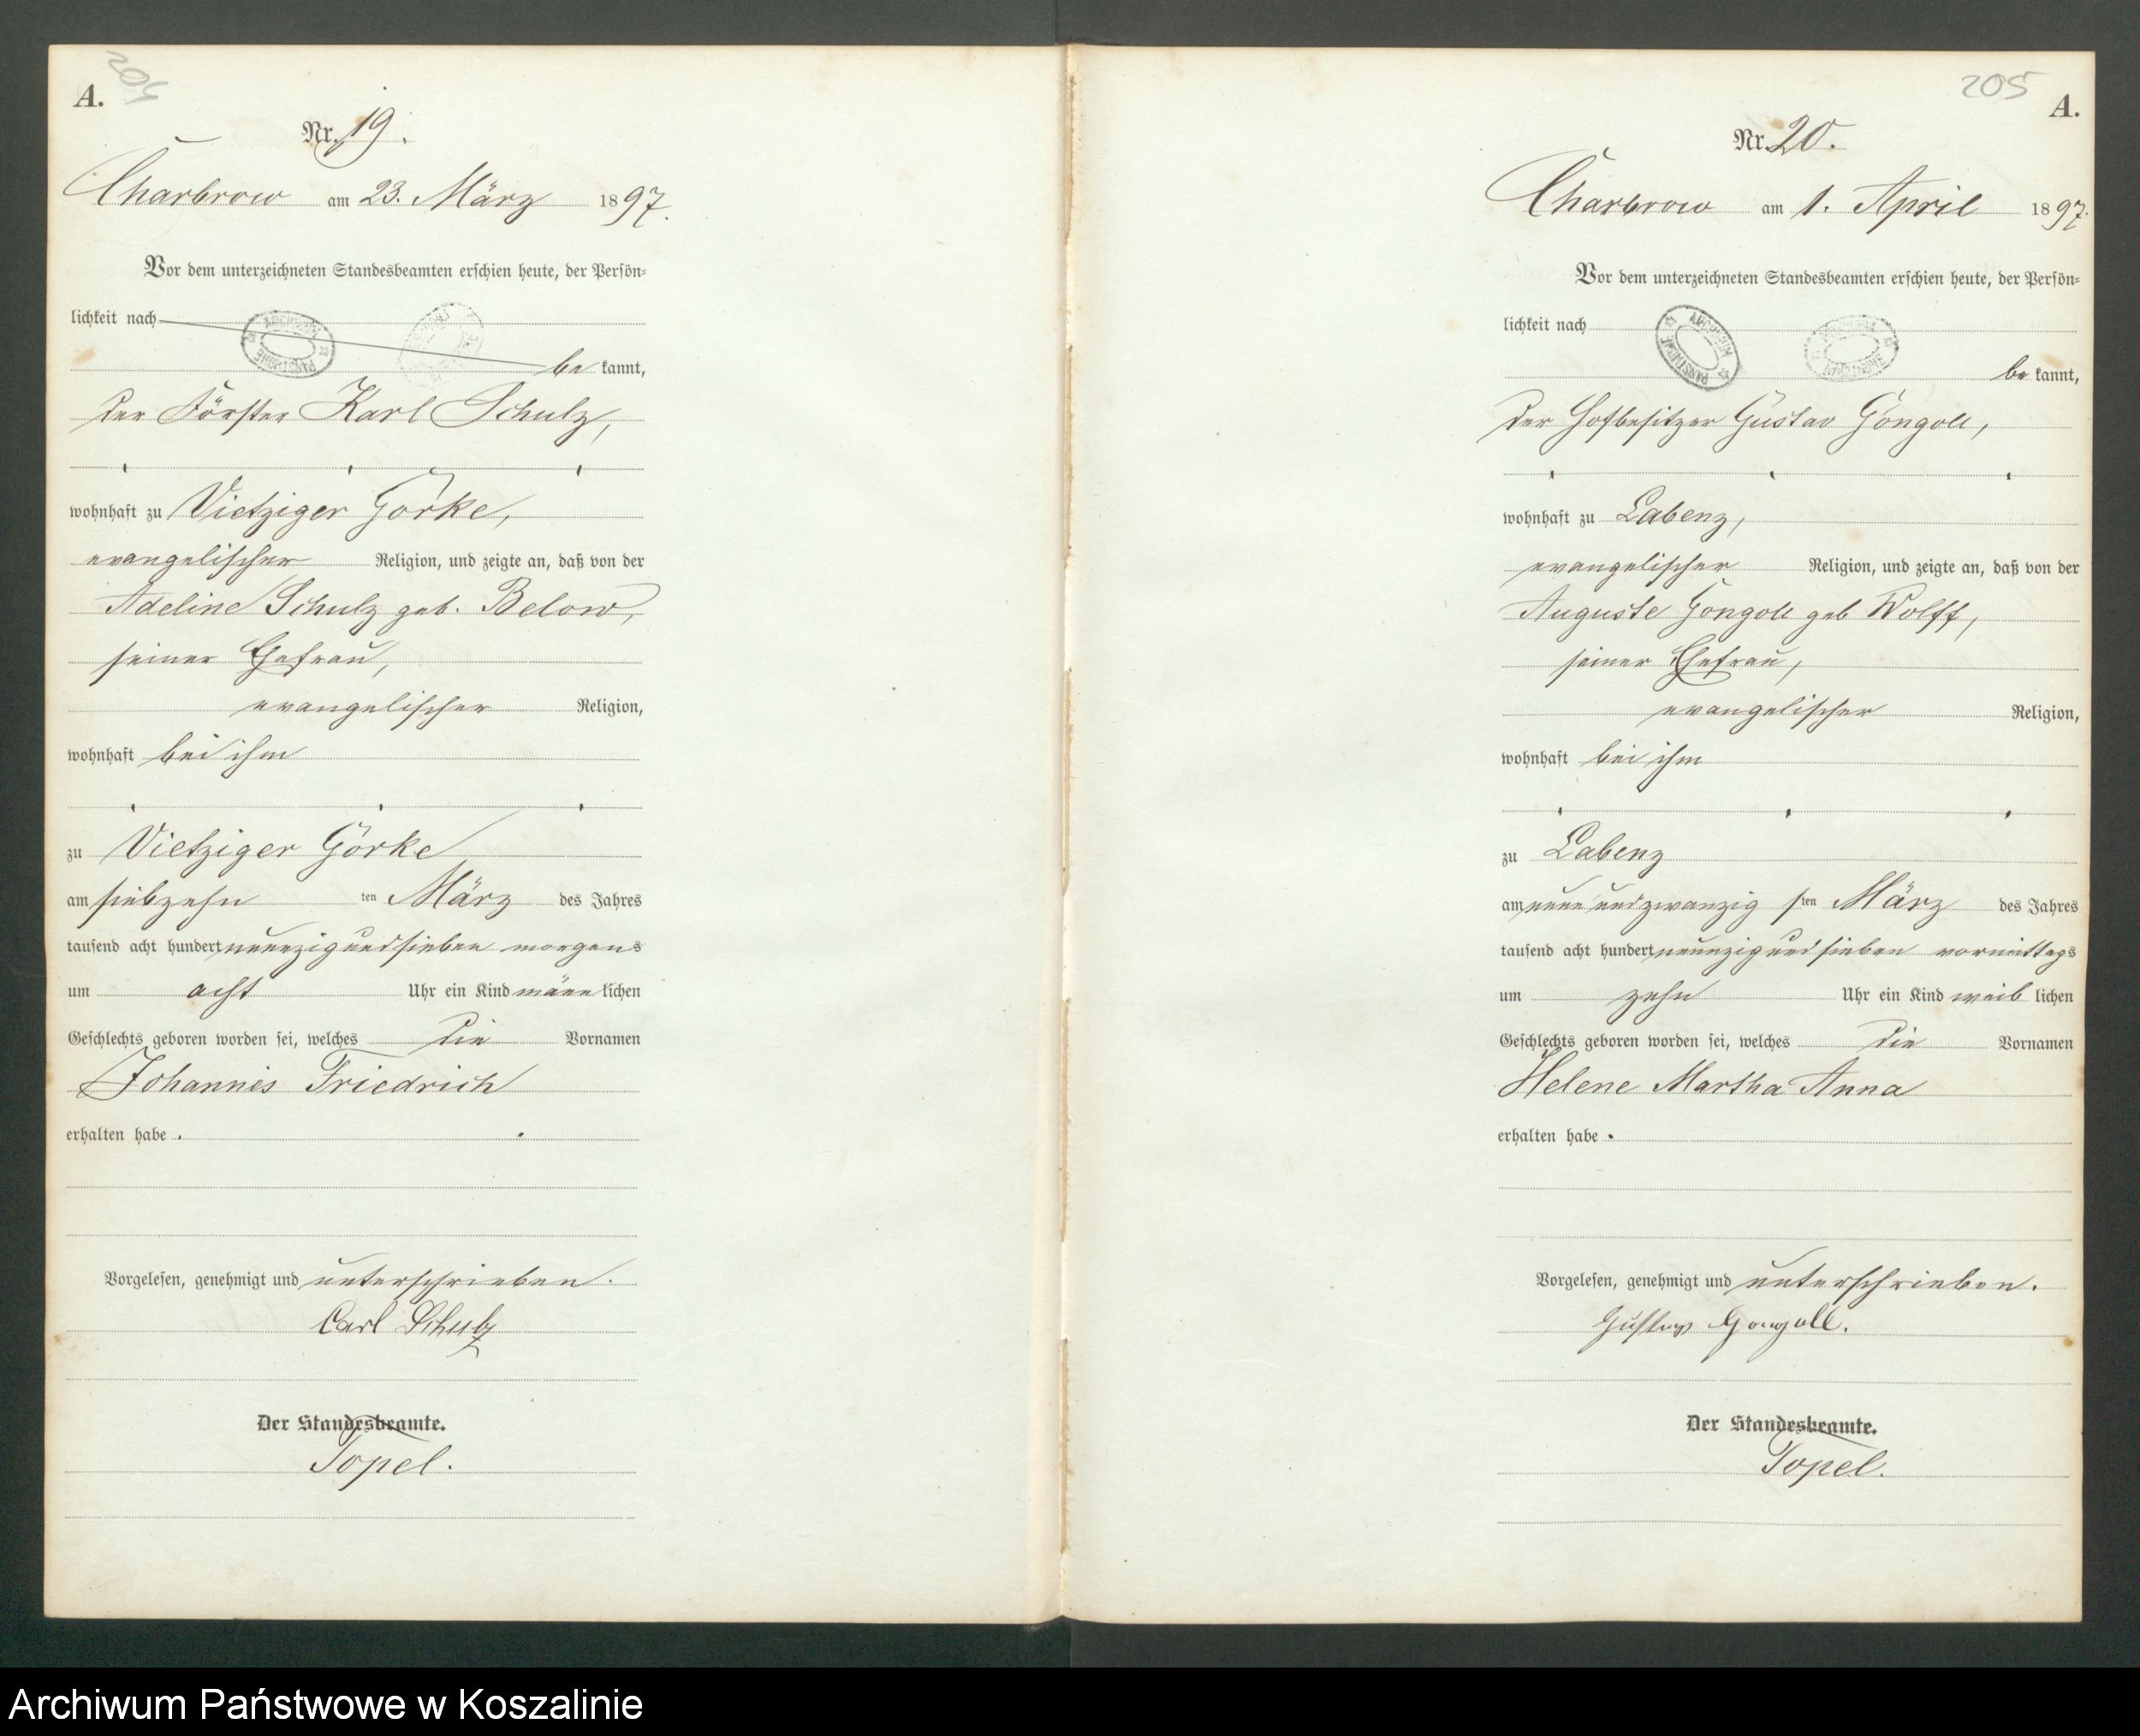 A.
204
Nr. 19.
Charbrow am 23. März 1897.
Vor dem unterzeichneten Standesbeamten erschien heute, der Persön-
lichkeit nach
be kannt,
der Förster Karl Schulz,
wohnhaft zu Vietziger Görke,
evangelischer Religion, und zeigte an, daß von der
Adeline Schulz geb. Below,
seiner Ehefrau,
evangelischer Religion,
wohnhaft bei ihm
zu Vietziger Görke
am siebzehn ten März des Jahres
tausend acht hundert neunzig und sieben morgens
um acht Uhr ein Kind männlichen
Geschlechts geboren worden sei, welches die Vornamen
Johannes Friedrich
erhalten habe.
Vorgelesen, genehmigt und unterschrieben.
Carl Schulz
Der Standesbeamte.
Topel.
205
A.
Nr. 20.
Charbrow am 1. April 1897.
Vor dem unterzeichneten Standesbeamten erschien heute, der Persön-
lichkeit nach
be kannt,
der Hofbesitzer Gustav Gongoll,
wohnhaft zu Labenz,
evangelischer Religion, und zeigte an, daß von der
Auguste Gongoll geb Wolff,
seiner Ehefrau,
evangelischer Religion,
wohnhaft bei ihm
zu Labenz
am neun und zwanzig sten März des Jahres
tausend acht hundert neunzig und sieben vormittags
um zehn Uhr ein Kind weib lichen
Geschlechts geboren worden sei, welches die Vornamen
Helene Martha Anna
erhalten habe.
Vorgelesen, genehmigt und unterschrieben.
Gustav Gongoll.
Der Standesbeamte.
Topel.
Archiwum Państwowe w Koszalinie